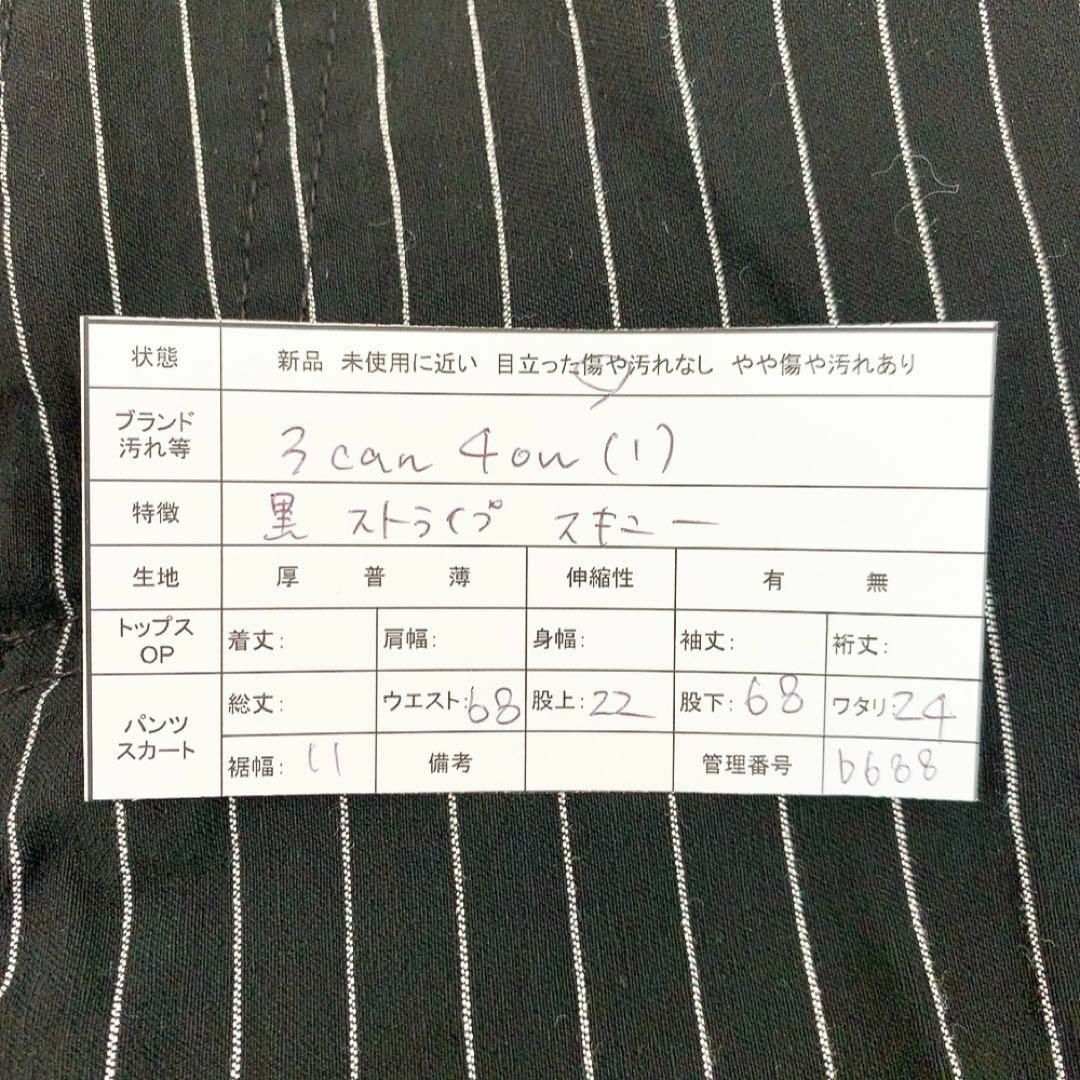 状態 新品 未使用に近い 目立った傷や汚れなし やや傷や汚れあり
ブランド
汚れ等 3can4on(1)
特徴 黒 ストライプ スキニー
生地 厚 普 薄 伸縮性 有 無
トップス
OP 着丈: 肩幅: 身幅: 袖丈: 裄丈:
パンツ
スカート 総丈: ウエスト:68 股上:22 股下:68 ワタリ:24
裾幅: 11 備考 管理番号 b688